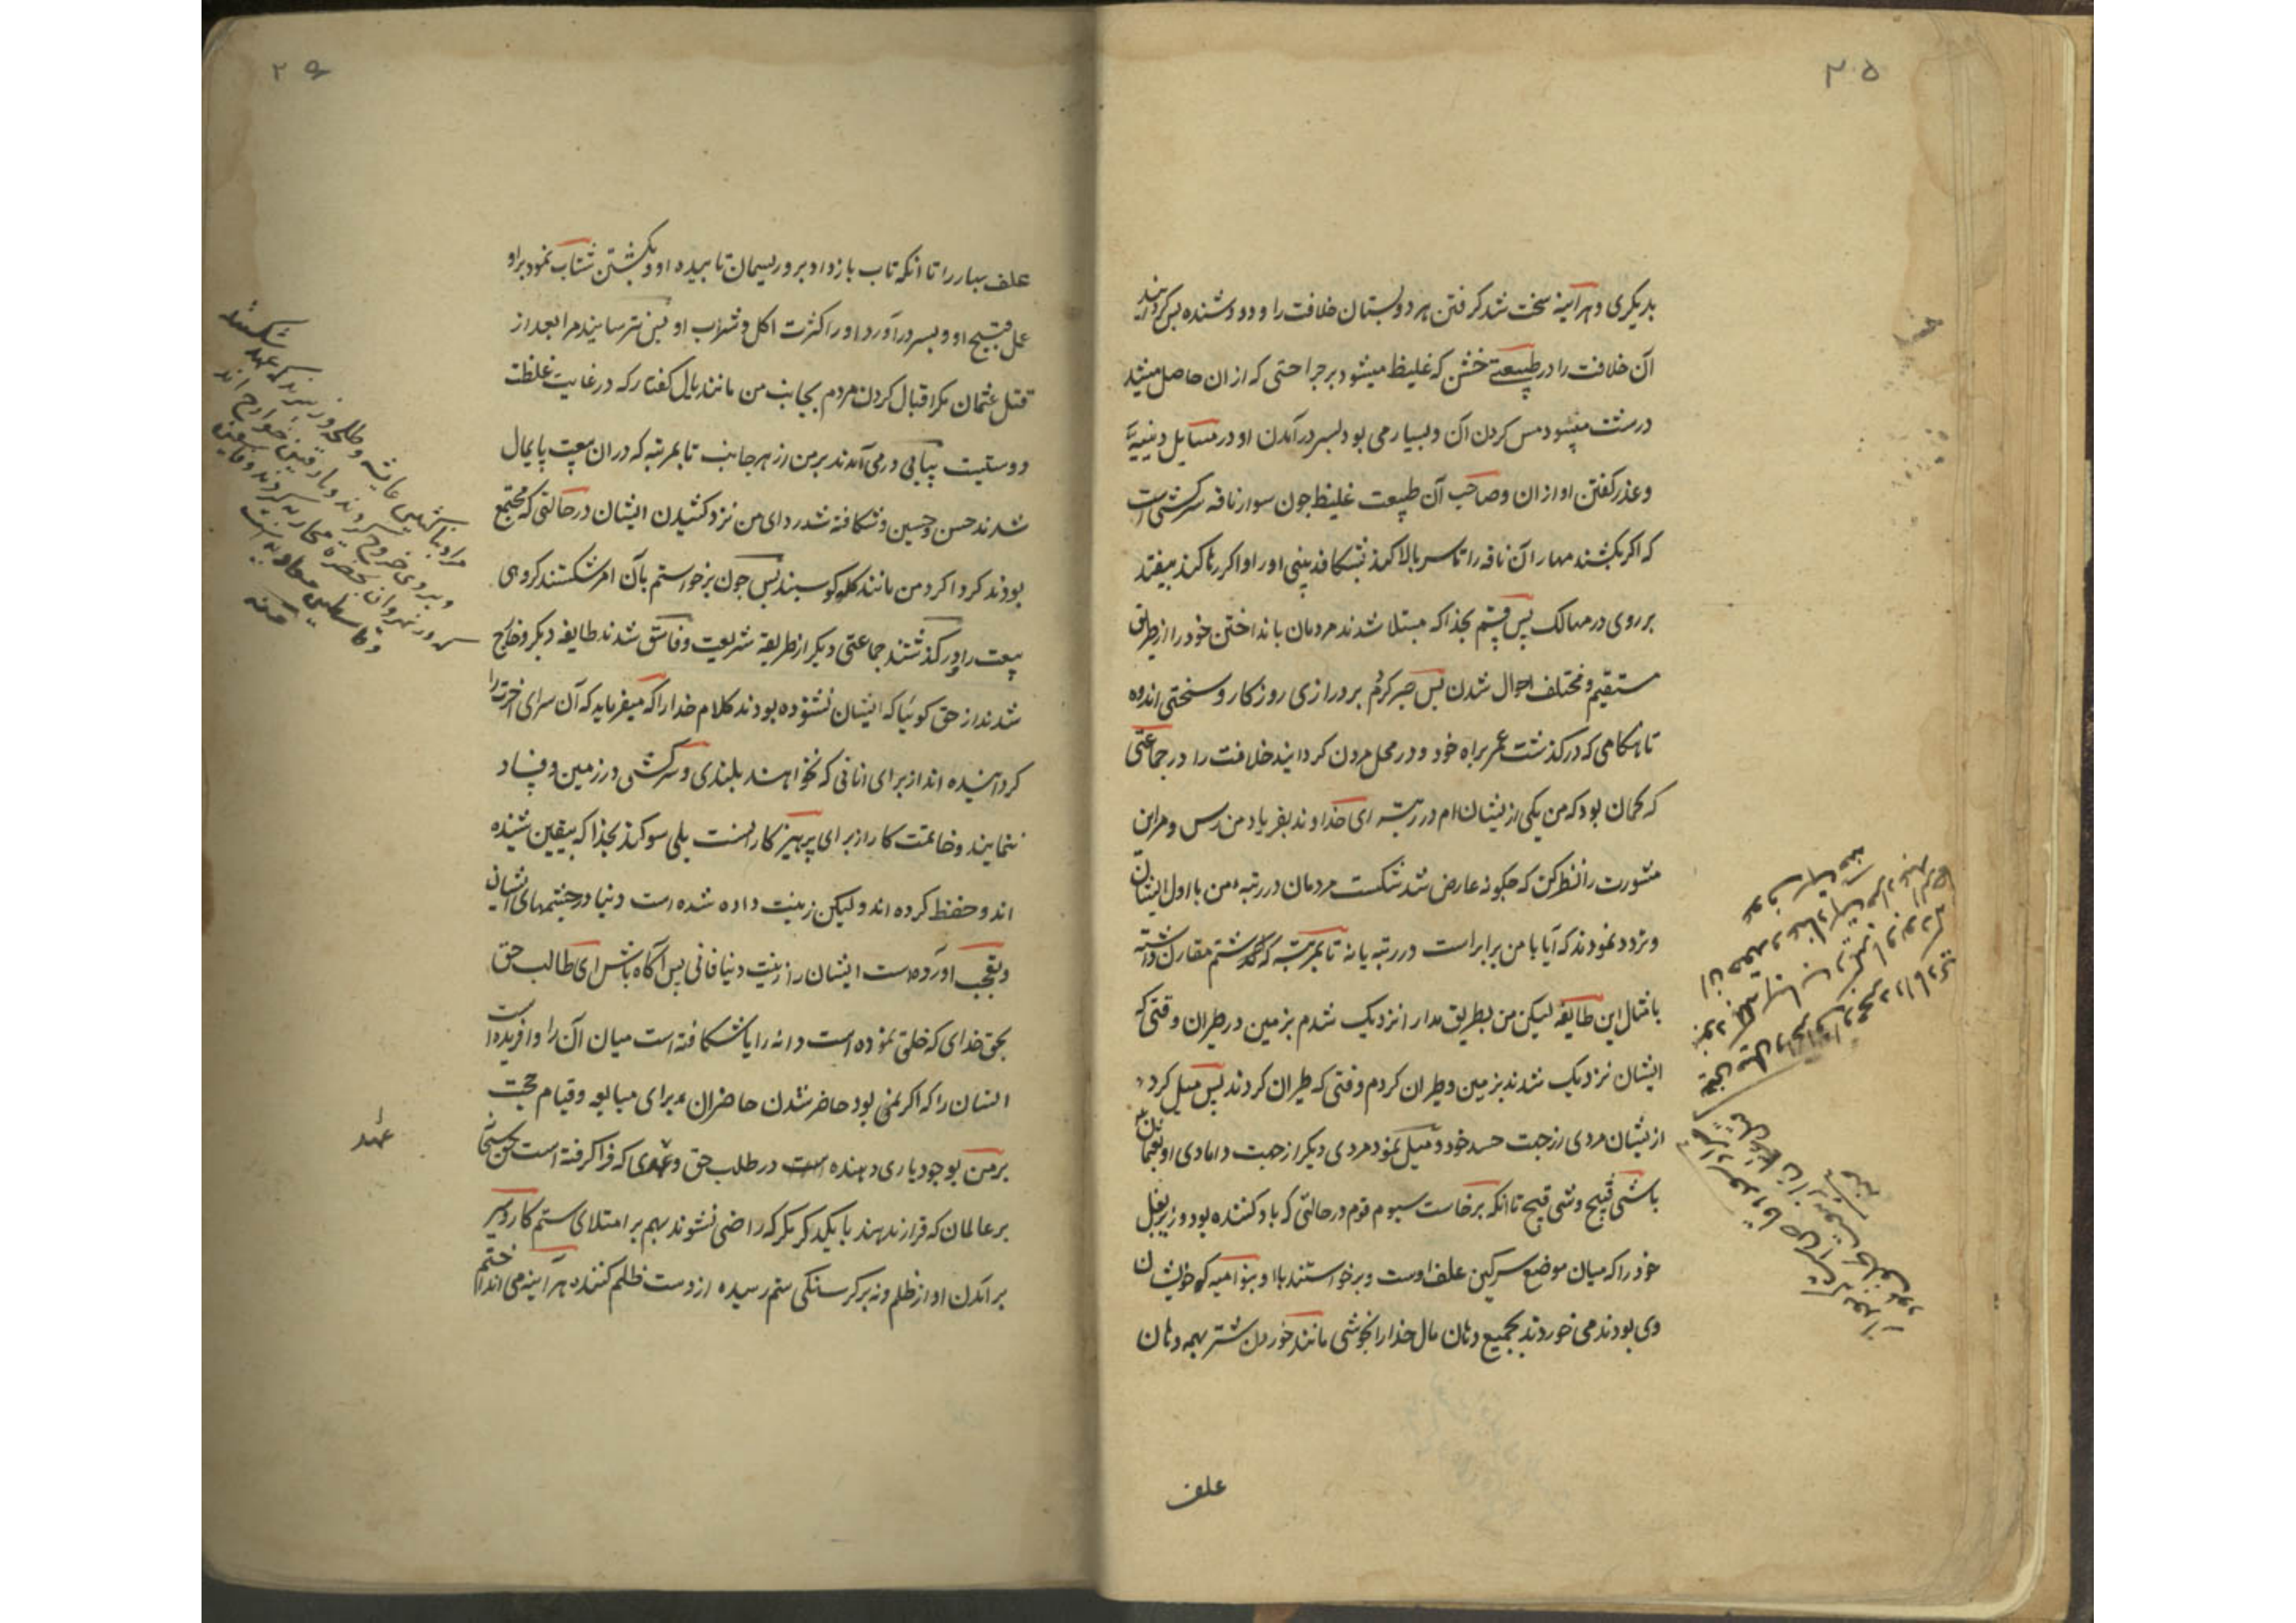 ۳۰۵
بدیکری و هرآینه سخت شد کرفتن هر دو پستان خلافت را و دو دوشنده پس کردانیدند
آن خلافت را در طبیعتی خشن که غلیظ میشود بر جراحتی که از ان حاصل میشد
درشت میشود مس کردن آن و بسیار می بود بسر درآمدن او در مسایل دینیه
و عذر کفتن او از ان و صاحب آن طبیعت غلیظ چون سوار ناقه سرکش است
که اکر بکشند مهار آن ناقه را تا سر بالا کند بشکافد بینی او را و اکر رها کند بیفتد
بر روی در مهالک پس قسم بخدا که مبتلا شدند مردمان بانداختن خود را از طریق
مستقیم و مختلف احوال شدن پس صبر کردم بر درازی روزکار و سختی اندوه
تا هنکامی که درکذشت عمر براه خود و در محل مردن کردانید خلافت را در جماعتی
که کمان بود که من یکی از یشان ام در رتبه ای خداوند بفریاد من رس و مر این
مشورت را نظر کن که چکونه عارض شد شکست مردمان در رتبه من با اول ایشان
و تردد نمودند که آیا با من برابر است در رتبه یا نه تا بمرتبه که کشتم مقارن داشته
بامثال این طایفه لیکن من بطریق مدارا نزدیک شدم بزمین در طیران وقتی که
ایشان نزدیک شدند بزمین و طیران کردم وقتی که طیران کردند پس میل کرد
از یشان مردی از جهت حسد خود و میل نمود مردی دیکر از جهت دامادی او بعثمان
با شئی قبیح و شئی قبیح تا انکه برخاست سیوم قوم در حالتی که باد کننده بود دو زیر بغل
خود را که میان موضع سرکین علف اوست و برخواستند با او بنو امیه که خویشان
وی بودند می خوردند بجمیع دهان مال خدا را بخوشی مانند خوردن شتر بهمه دهان
علف
علف بهار را تا انکه تاب باز داد برو ریسمان تابیده او و بکشتن شتاب نمود براو
عمل قبیح او و بسر درآورد او را کثرت اکل و شراب او پس نترسانیند مرا بعد از
قتل عثمان مکر اقبال کردن مردم بجانب من مانند یال کفتار که در غایت غلظت
و وستیت پیاپی درمی آمدند بر من از هر جانب تا بمرتبه که در ان بیعت پایمال
شدند حسن و حسین و شکافته شد ردای من نزد کشیدن ایشان در حالتی که مجتمع
بودند کرد اکرد من مانند کله کوسبند پس چون برخواستم بآن امر شکستند کروهی
بیعت را و درکذشتند جماعتی دیکر از طریقه شریعت و فاسق شدند طایفه دیکر و خارج
شدند از حق کوئیا که ایشان نشنوده بودند کلام خدا را که میفرماید که آن سرای اخرت را
کردانیده اند از برای انانی که نخواهند بلندی و سرکشی در زمین و فساد
ننمایند و خاتمت کار از برای پرهیزکارانست بلی سوکند بخدا که بیقین شنیده
اند و حفظ کرده اند و لیکن زینت داده شده است دنیا در چشمهای ایشان
و بعجب آورده است ایشان را زینت دنیا فانی پس آکاه باش ای طالب حق
بحق خدای که خلق نموده است دانه را یا شکافته است میان آن را و افریده است
انسان را که اکر نمی بود حاضر شدن حاضران برای مبایعه و قیام حجت
بر من بوجود یاری دهنده است در طلب حق و عهدی که فرا کرفته است حق سبحانه
بر عالمان که قرار ندهند با یکدیکر که راضی نشوند بهم بر امتلای ستم کار و سیر
برآمدن او از ظلم و نه بر کرسنکی ستم رسیده از دست ظلم کننده هرآینه می انداختم
عهد